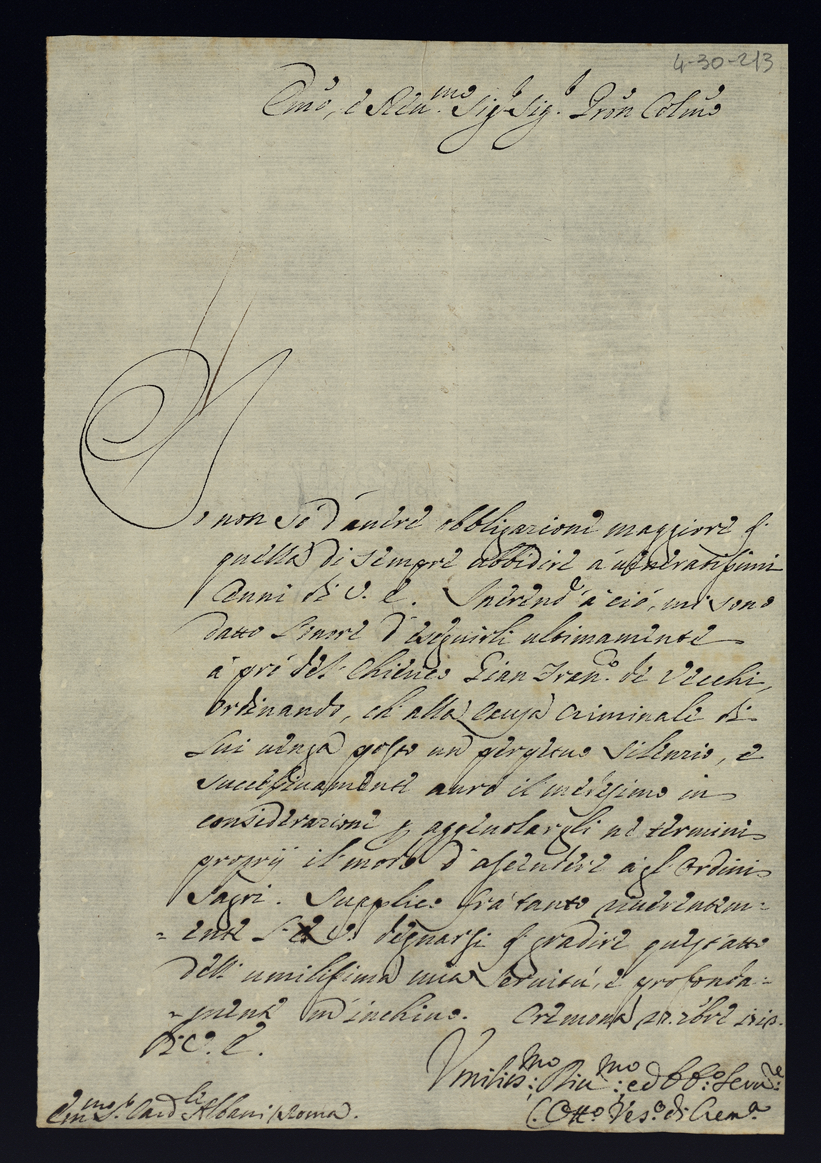 4-30-213
Emo, e Reu.mo Sig.r Sig.r Pron Colmo
Io non sò d'auere obbligazione maggiore di
quella di sempre obbidire a uenerati ssimi
Cenni di V. E. Inerend.o à ciò, mi sono
datto l'onore d'eseguirli ultimamente
à prò del Chierico Gian Fran.co de Vecchi,
ordinando, ch'alla Causa Criminale di
lui uenga posto un perpetuo silenzio, e
successiuamente aurò il medesimo in
considerazione p ageuolargli ne termini
proprij il modo d'ascendere agl'Ordini
Sagri. Supplico frà tanto riuerentem=
=ente l'E. V. degnarsi di gradire quest'atto
dell'umilissima mia seruitù, e profonda=
=mente m'inchino. Cremona
Di V. E.
Vmilis.mo Diu.mo ed obb.o Seru.re
C. Otto. Ves.o di Crem.a
Emo S.r Card.le Albani Roma.